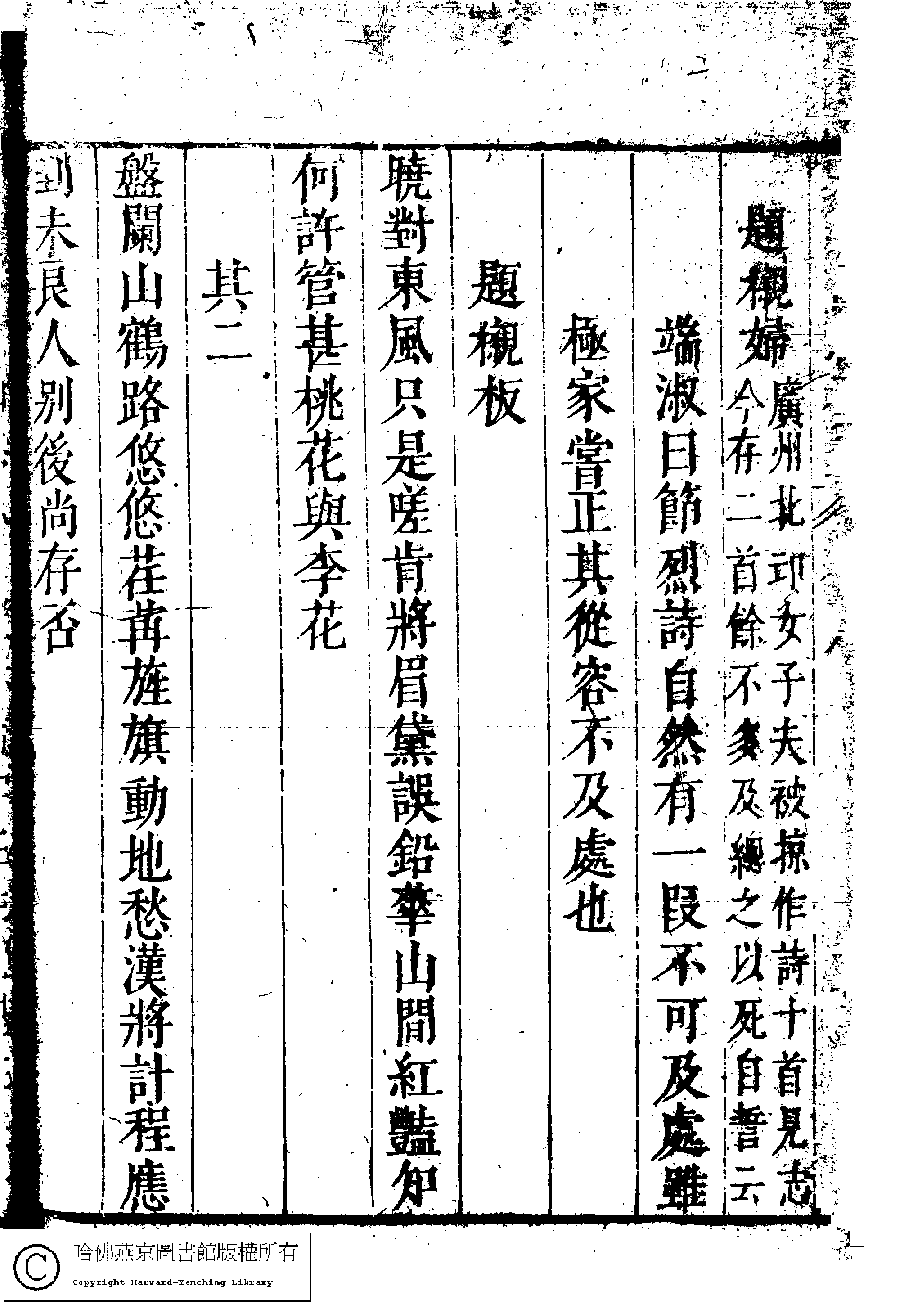 題櫬婦 廣州北邙女子夫被掠作詩十首見志
今存二首餘不多及總之以死自誓云
端淑曰節烈詩自然有一段不可及處雖
極家嘗正其從容不及處也
題櫬板
曉對東風只是嗟肯將眉黛誤鉛華山間紅豔知
何許管甚桃花與李花
其二
盤闌山鶴路悠悠荏苒旌旗動地愁漢將計程應
到未良人別後尚存否
哈佛燕京圖書館版權所有
Copyright Harvard-Yenching Library